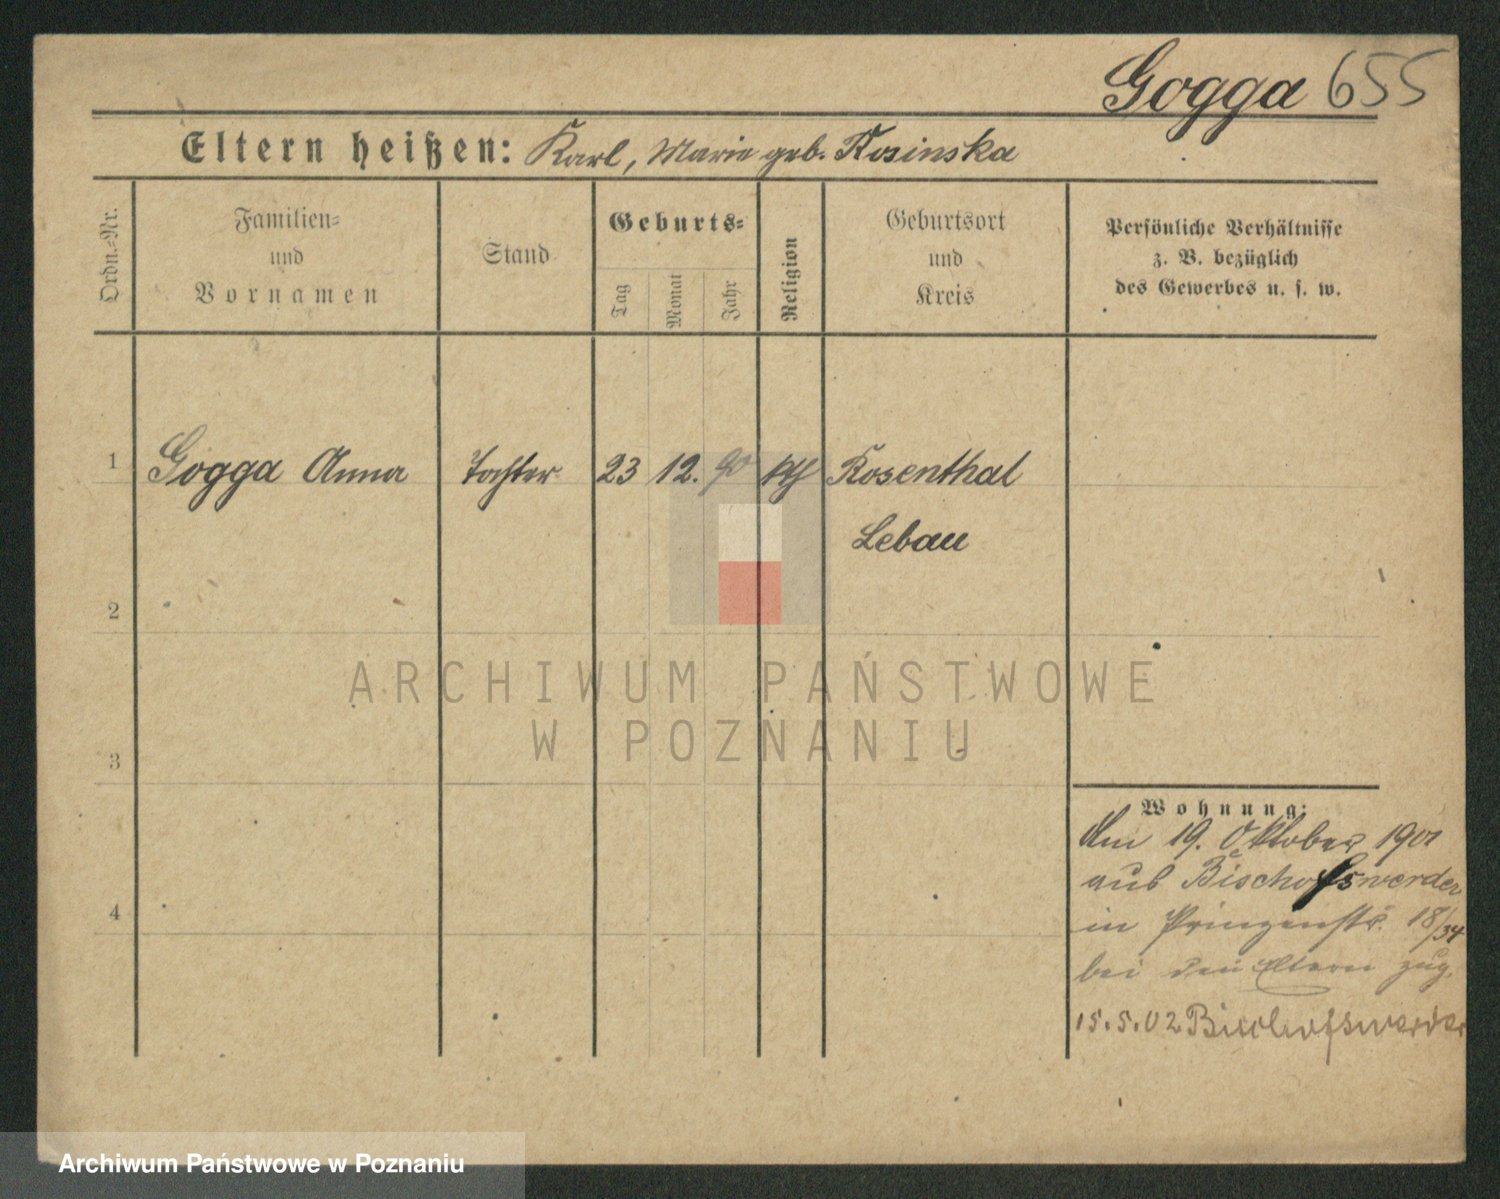 Gogga 655
Eltern heißen: Karl, Marie geb. Rosinska
Ordn.=Nr.
Familien=
und
Vornamen
Stand
Geburts=
Tag
Monat
Jahr
Religion
Geburtsort
und
Kreis
Persönliche Verhältnisse
z. B. bezüglich
des Gewerbes u. s. w.
1 Gogga Anna Tochter 23 12. 90 kth Rosenthal
Lebau
2
3
4
Wohnung:
Am 19. Oktober 1901
aus Bischofswerder
in Prinzenstr. 18/34
bei den Eltern zug.
15.5.02 Bischofswerder
ARCHIWUM PAŃSTWOWE
W POZNANIU
Archiwum Państwowe w Poznaniu